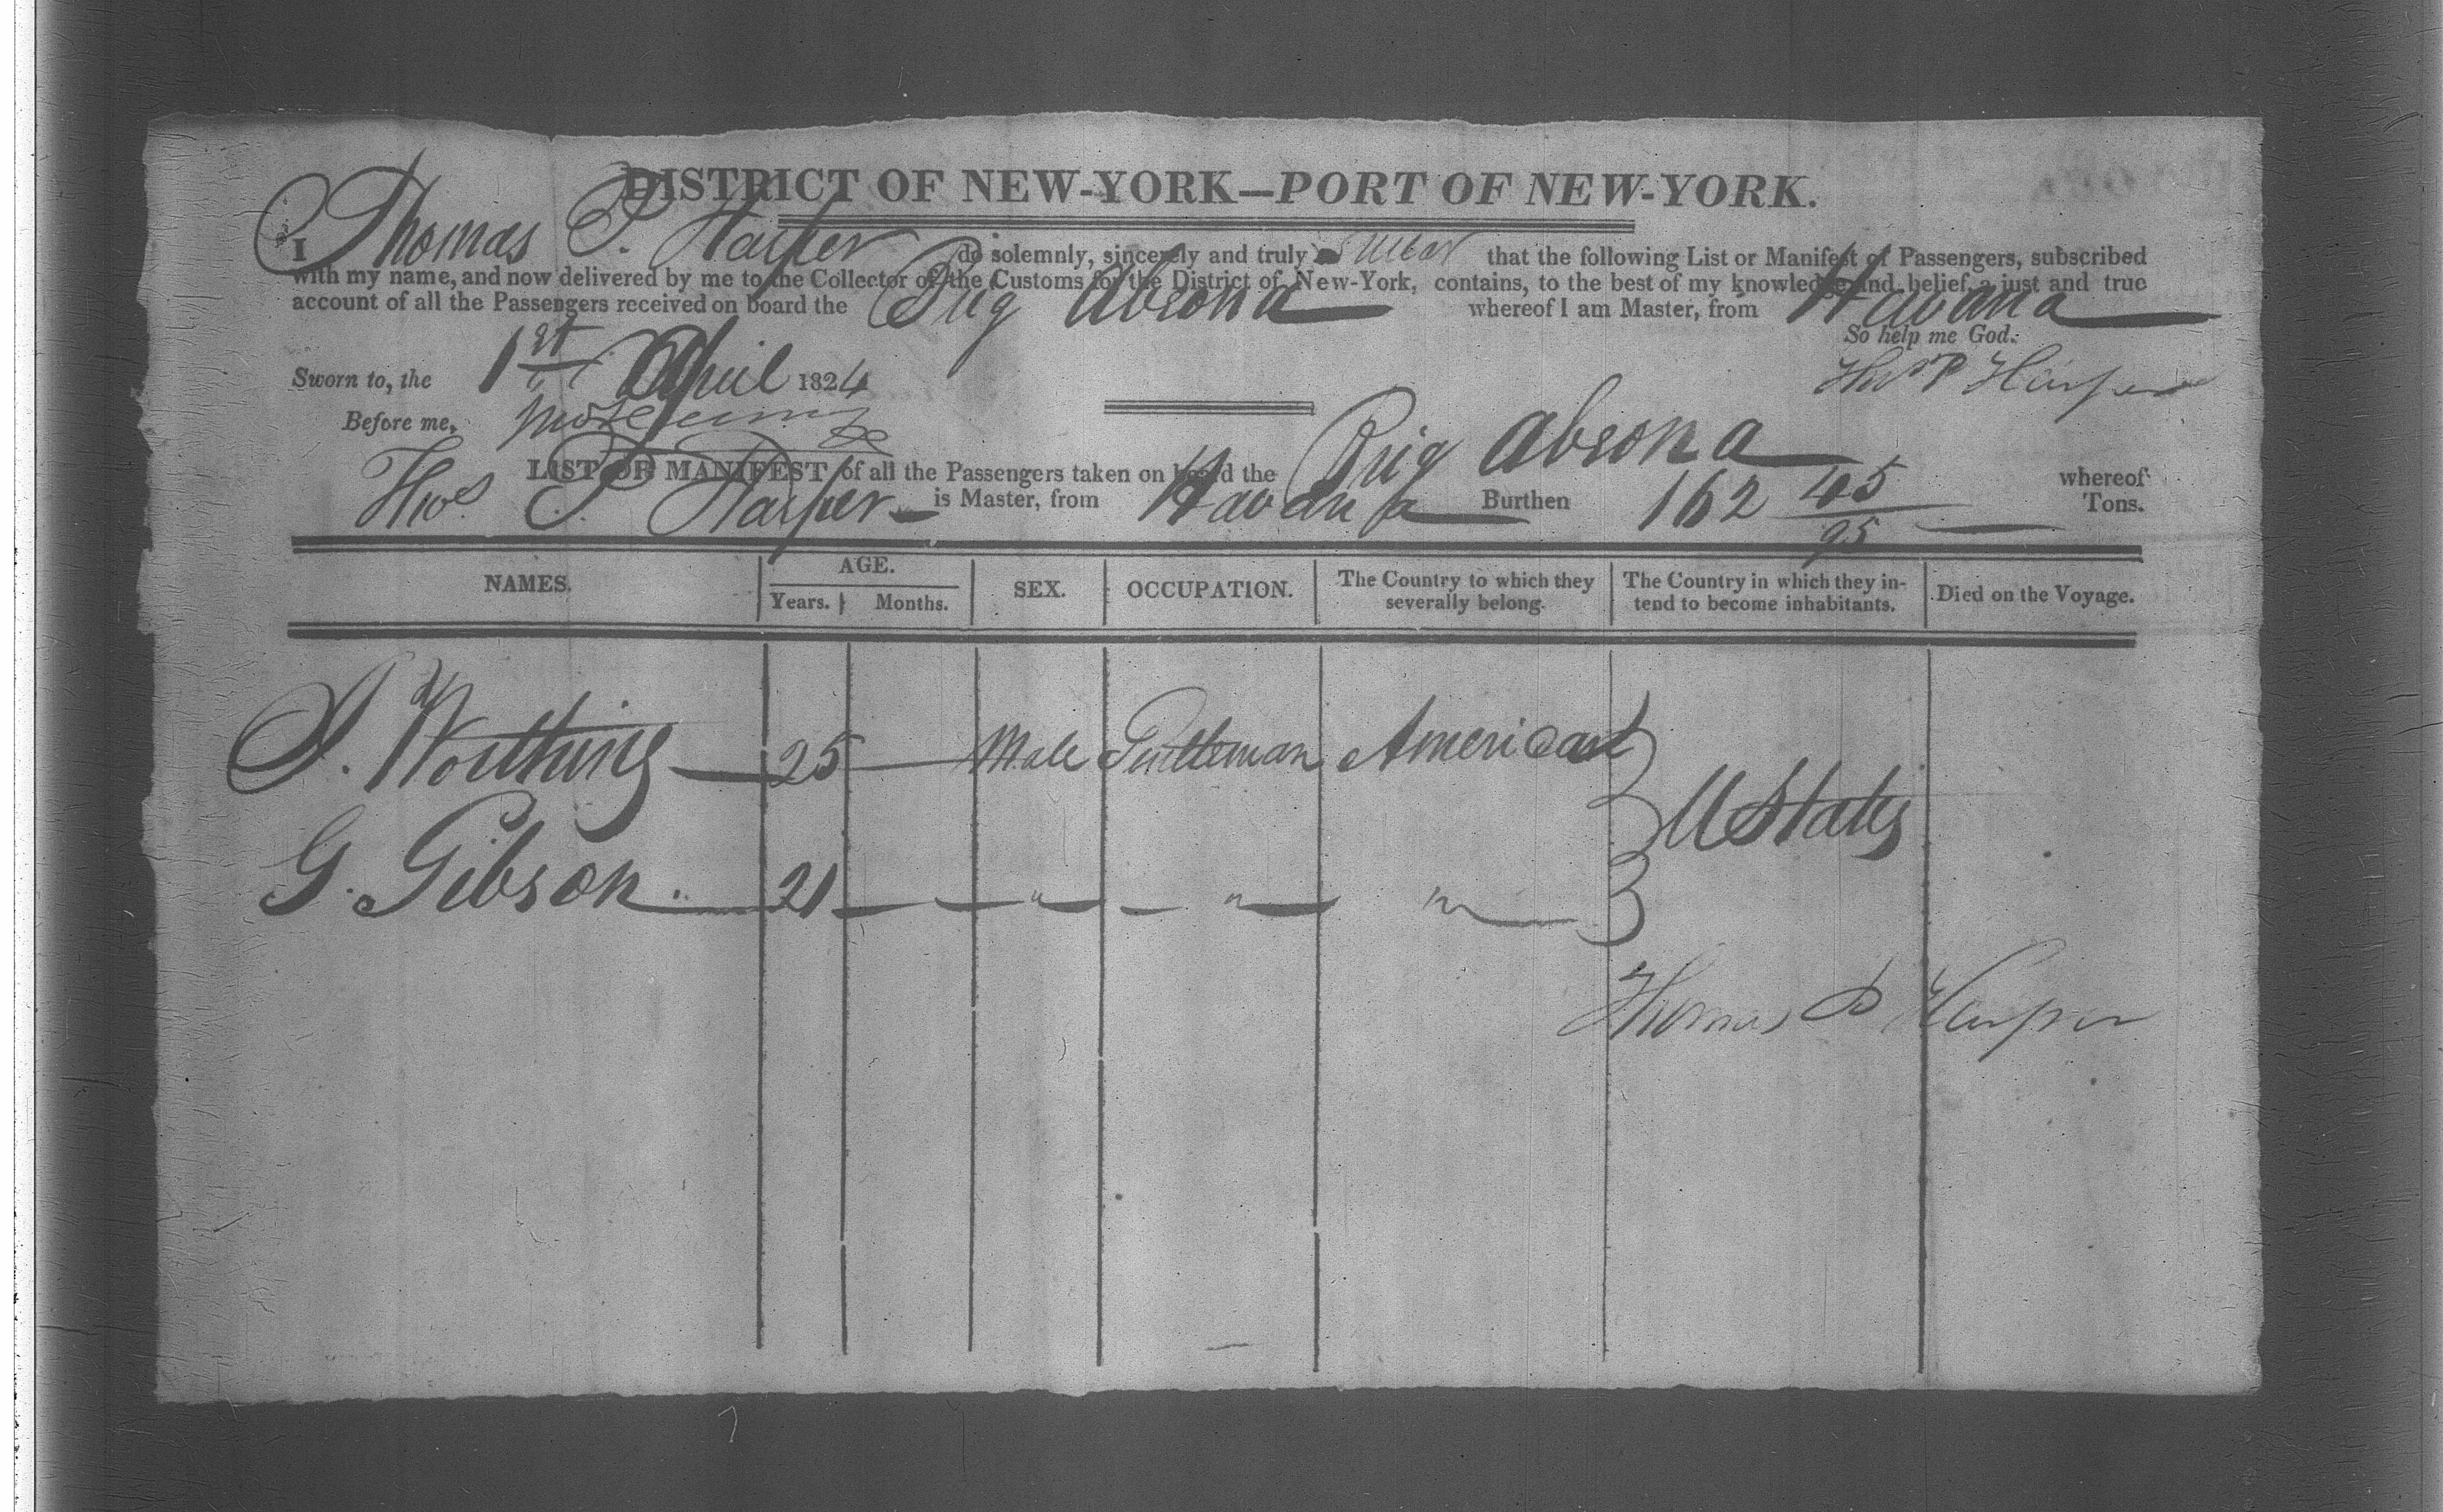 DISTRICT OF NEW-YORK—PORT OF NEW-YORK.
I Thomas P. Harper do solemnly, sincerely and truly swear that the following List or Manifest of Passengers, subscribed
with my name, and now delivered by me to the Collector of the Customs for the District of New-York, contains, to the best of my knowledge and belief, a just and true
account of all the Passengers received on board the Brig Absona whereof I am Master, from Havana
So help me God.
Sworn to, the 1st April 1824 Thos P Harper
Before me,
LIST OR MANIFEST of all the Passengers taken on board the Brig Absona whereof
Thos. P Harper is Master, from Havana Burthen 162 45/95 Tons.
NAMES. AGE. Years. Months. SEX. OCCUPATION. The Country to which they severally belong. The Country in which they intend to become inhabitants. Died on the Voyage.
Worthing 25 Male Gentleman American
U States
G. Gibson 21 " " "
Thomas P Harper